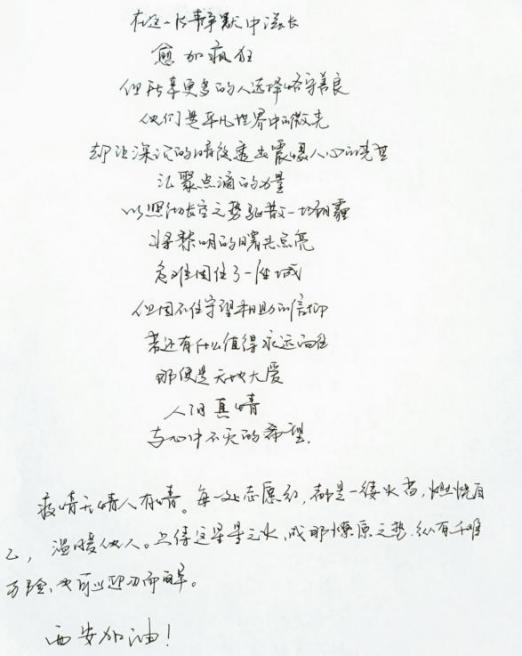 在这一片静默中滋长
愈加疯狂
但所幸更多的人选择恪守善良
他们是平凡世界中的微光
却让深沉的暗夜透出震慑人心的光芒
汇聚点滴的力量
以照彻长空之势驱散一切阴霾
将黎明的曙光点亮
危难困住了一座城
但困不住守望相助的信仰
若还有什么值得永远向往
那便是天地大爱
人间真情
与心中不灭的希望.
疫情无情人有情。每一处志愿红，都是一缕火苗，燃烧自
己，温暖他人。点点星星之火，成那燎原之势，纵有千难
万险，也可以迎刃而解。
西安加油！